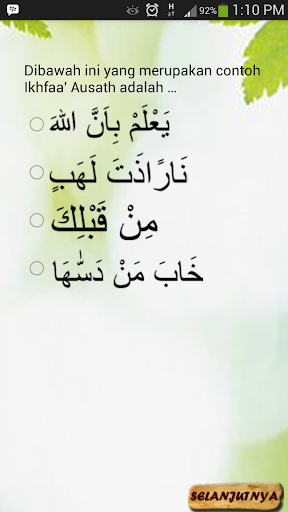 92% 1:10 PM
Dibawah ini yang merupakan contoh
Ikhfaa' Ausath adalah ...
يَعْلَمْ بِاَنَّ اللهَ
نَارًاذَتَ لَهَبٍ
مِنْ قَبْلِكَ
خَابَ مَنْ دَسّٰهَا
SELANJUTNYA